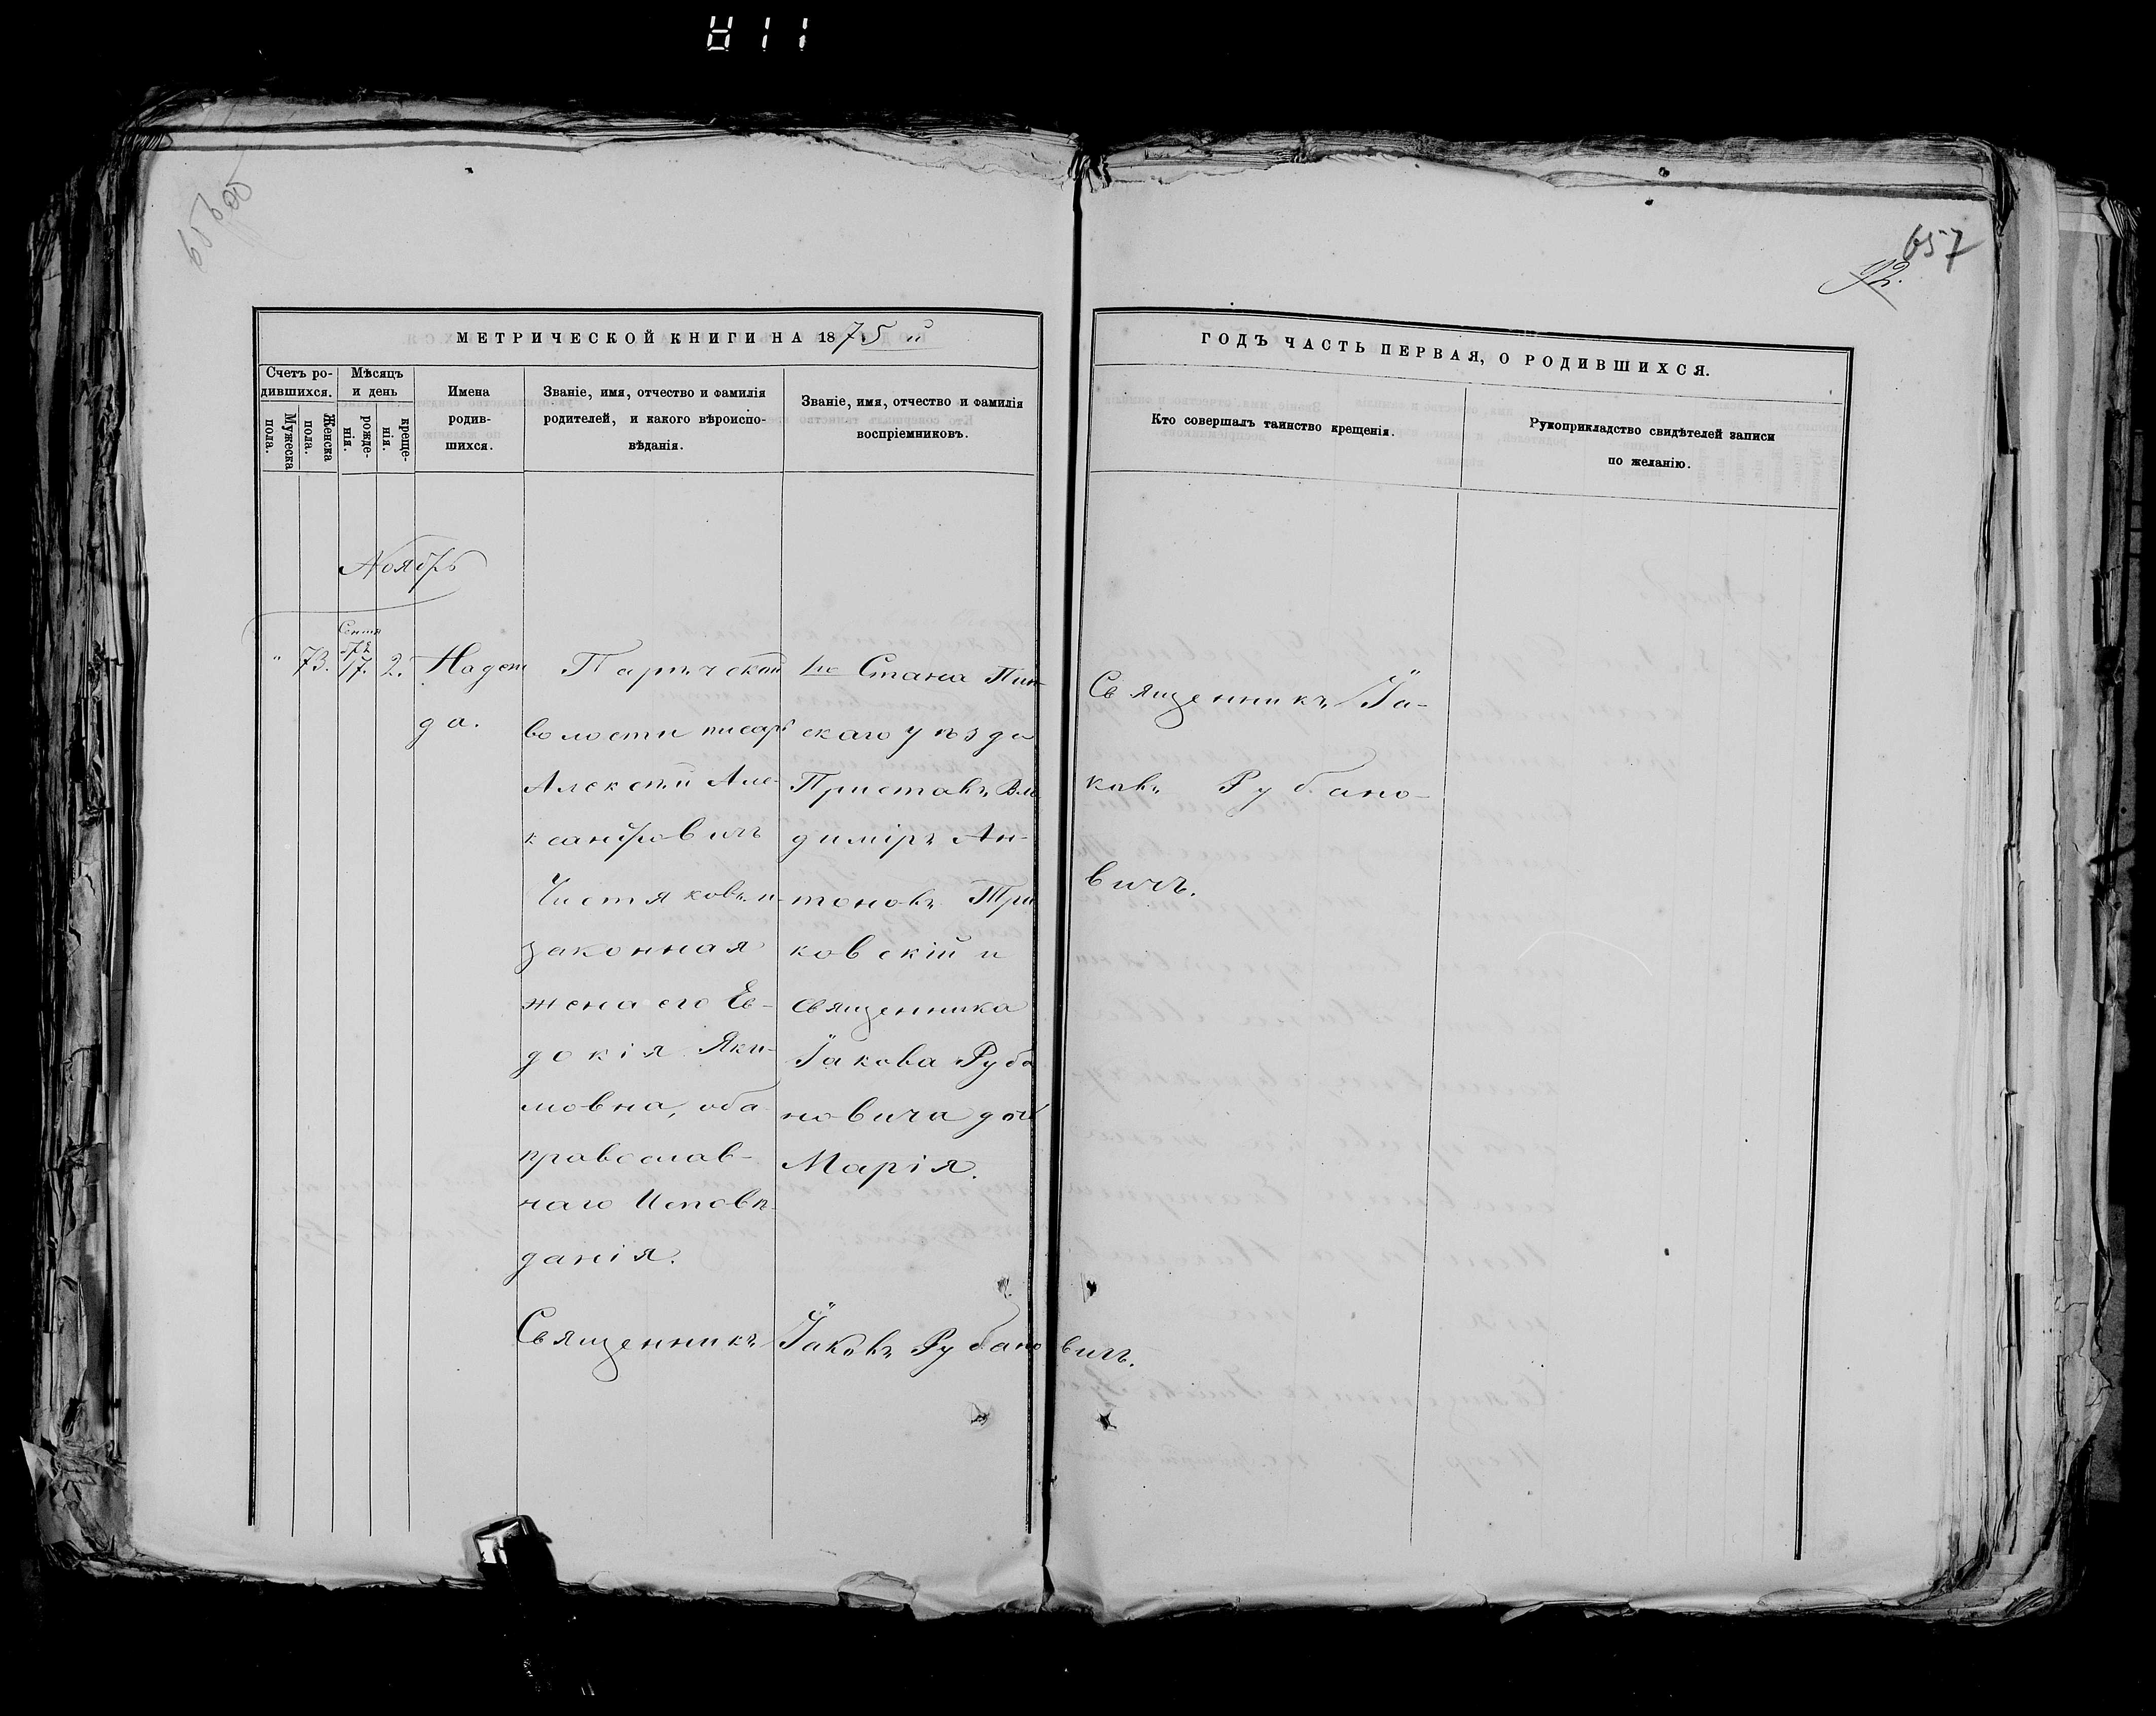 657
92.
МЕТРИЧЕСКОЙ КНИГИ НА 1875й
ГОДЪ ЧАСТЬ ПЕРВАЯ, О РОДИВШИХСЯ.
Счетъ ро-
дившихся.
Мужеска
пола.
Женска
пола.
Мѣсяцъ
и день
рожде-
нія.
креще-
нія.
Имена
родив-
шихся.
Званіе, имя, отчество и фамилія
родителей, и какого вѣроиспо-
вѣданія.
Званіе, имя, отчество и фамилія
воспріемниковъ.
Кто совершалъ таинство крещенія.
Рукоприкладство свидѣтелей записи
по желанію.
Ноябрь
" 73.
Сентя
17. 2.
Надеж
да.
волости писарь
Алексѣй Але-
ксандровичъ
Чистяковъ и
законная
жена его Ев-
докія Яки-
мовна, оба
православ-
наго Исповѣ-
данія.
1го Стана Пин-
скаго уѣзда
Приставъ Вла
димiръ Ан-
тоновъ
ковскій и
священника
Іакова Руба
новича дочь
Марія.
Священникъ Іа-
ковъ Рубано-
вичъ.
Священникъ Іаковъ Рубановичъ.